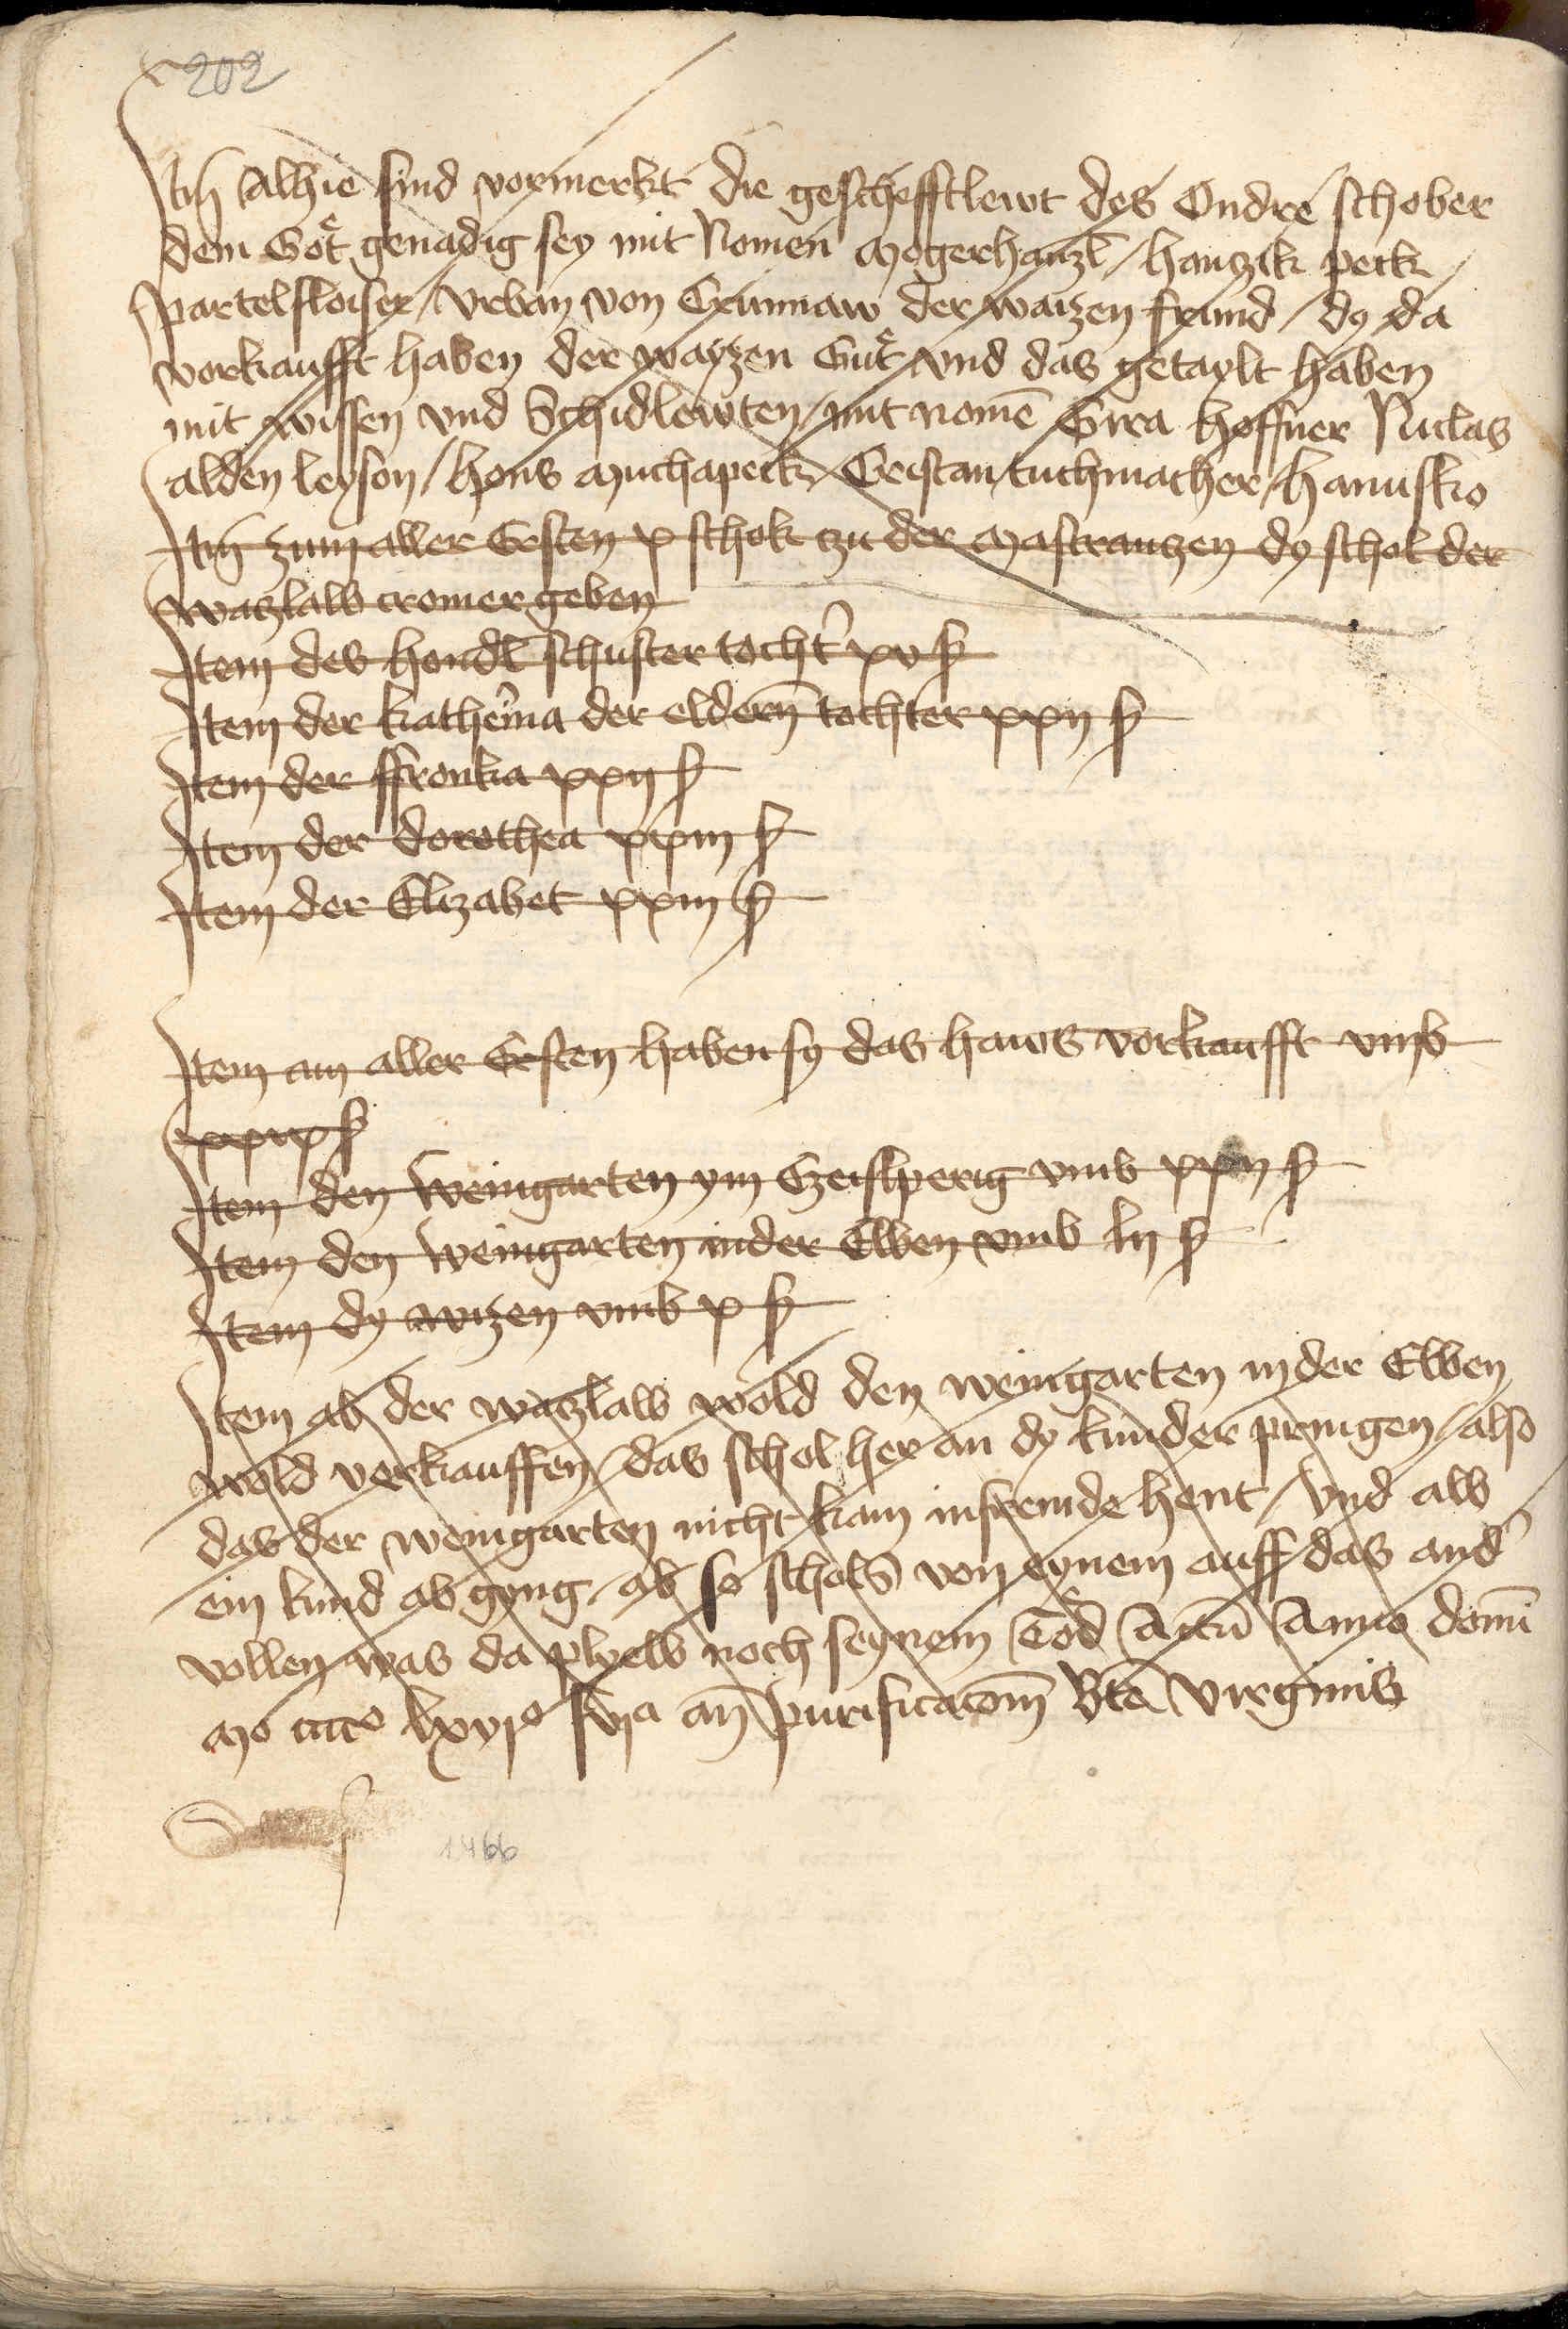 202
Itm̄ Alhie sind vormerkt die geschefftlewt des Ondre schober
dem Got genadig sey mit Nomen Mogerhanzl / hanzik peck
partelsloiser / Vrban von Crumaw der waizen frund / dy da
vorkaufft haben der wayzen Gut vnd das getaylt haben
mit wissen vnd Schidlewten / mit nomē Gira hoffner Niclas
alden leyson / hons muchapeck / Cristan tuchmacher / hanusko
Itm̄ zum aller Ersten x schok zu der Mastranzen dy schol der
wazlab cromer geben
Item des hendl schuster tocht xv ß
Item der kathe'ina der eldern̄ tochter xxij ß
Item der ffronka xxij ß
Item der dorothea xxiij ß
Item der Elizabet xxiij ß
Item am aller Ersten haben sy das haws vorkaufft vmb
ß
Item den Weingarten ym Geislperig vmb ß
Item den weingarten in der Elben vmb lij ß
Item dy wizen vmb x ß
Item ab der wazlab wold den weingarten in der Elben
wold verkauffen / das schol her an dy kinder pringen / also
das der weingarten nicht kam in fremde hent / vnd alb
ein kind ab gyng / ab so schols von eynem auff das and'
vollen was da plyeb noch seynem Tod Actū Anno domī
Mo cccco lxvjo fia an̄ purificacom̄ Bte virginis
1466